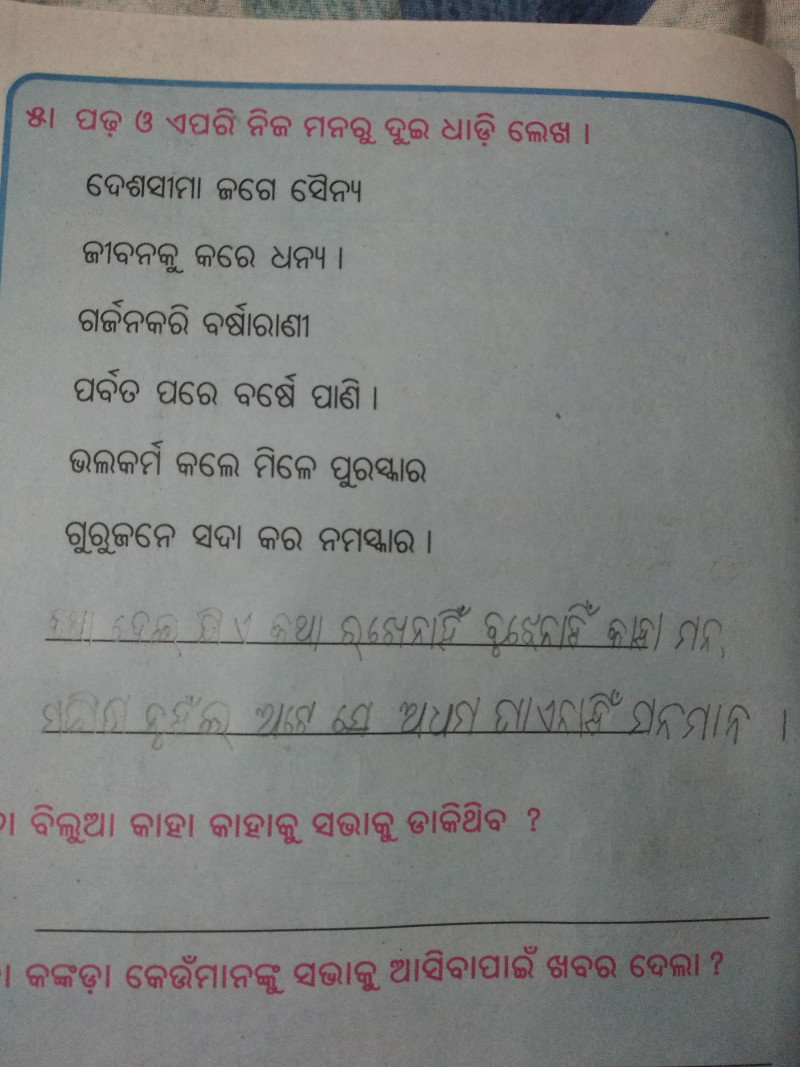 ୫। ପଢ଼ ଓ ଏପରି ନିଜ ମନରୁ ଦୁଇ ଧାଡ଼ି ଲେଖ ।
ଦେଶସୀମା ଜଗେ ସୈନ୍ୟ
ଜୀବନକୁ କରେ ଧନ୍ୟ ।
ଗର୍ଜନକରି ବର୍ଷାରାଣୀ
ପର୍ବତ ପରେ ବର୍ଷେ ପାଣି ।
ଭଲକର୍ମ କଲେ ମିଳେ ପୁରସ୍କାର
ଗୁରୁଜନେ ସଦା କର ନମସ୍କାର ।
କଥା ଦେଇ ଯିଏ କଥା ରଖେନାହିଁ ବୁଝେନାହିଁ କାହା ମନ,
ଅଟେ ସେ ଅଧମ ପାଏନାହିଁ
। ବିଲୁଆ କାହା କାହାକୁ ସଭାକୁ ଡାକିଥିବ ?
। କଙ୍କଡ଼ା କେଉଁମାନଙ୍କୁ ସଭାକୁ ଆସିବାପାଇଁ ଖବର ଦେଲା ?